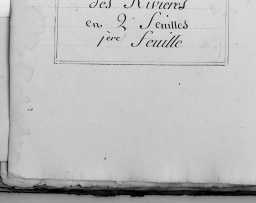 des Rivieres
en 2 Feuilles
1ere Feuille